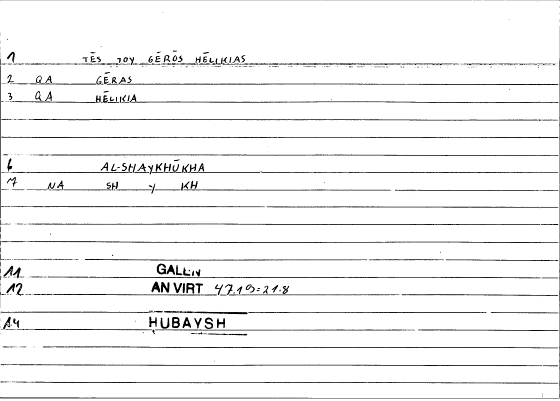 1 TĒS TOY GĒRŌS HĒLIKIAS
2 QA GĒRAS
3 QA HĒLIKIA
6 AL-SHAYKHŪKHA
7 NA SH Y KH
11 GALEN
12 AN VIRT 47.19=21.8
14 HUBAYSH